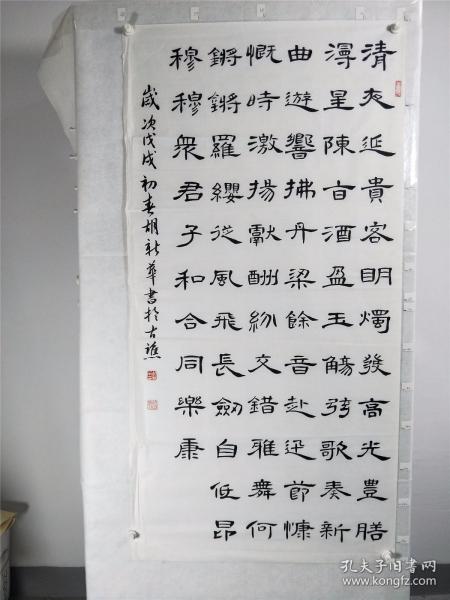 清夜延貴客眀燭發高光豊膳
漫星陳旨酒盈玉觴弦歌奏新
曲遊響拂丹梁餘音赴迅節慷
慨時激揚獻酬紛交錯雅舞何
鏘鏘羅纓從風飛長劔自低昂
穆穆衆君子和合同樂康
歲次戊戌初春胡新華書於古譙
孔夫子旧书网
www.kongfz.com